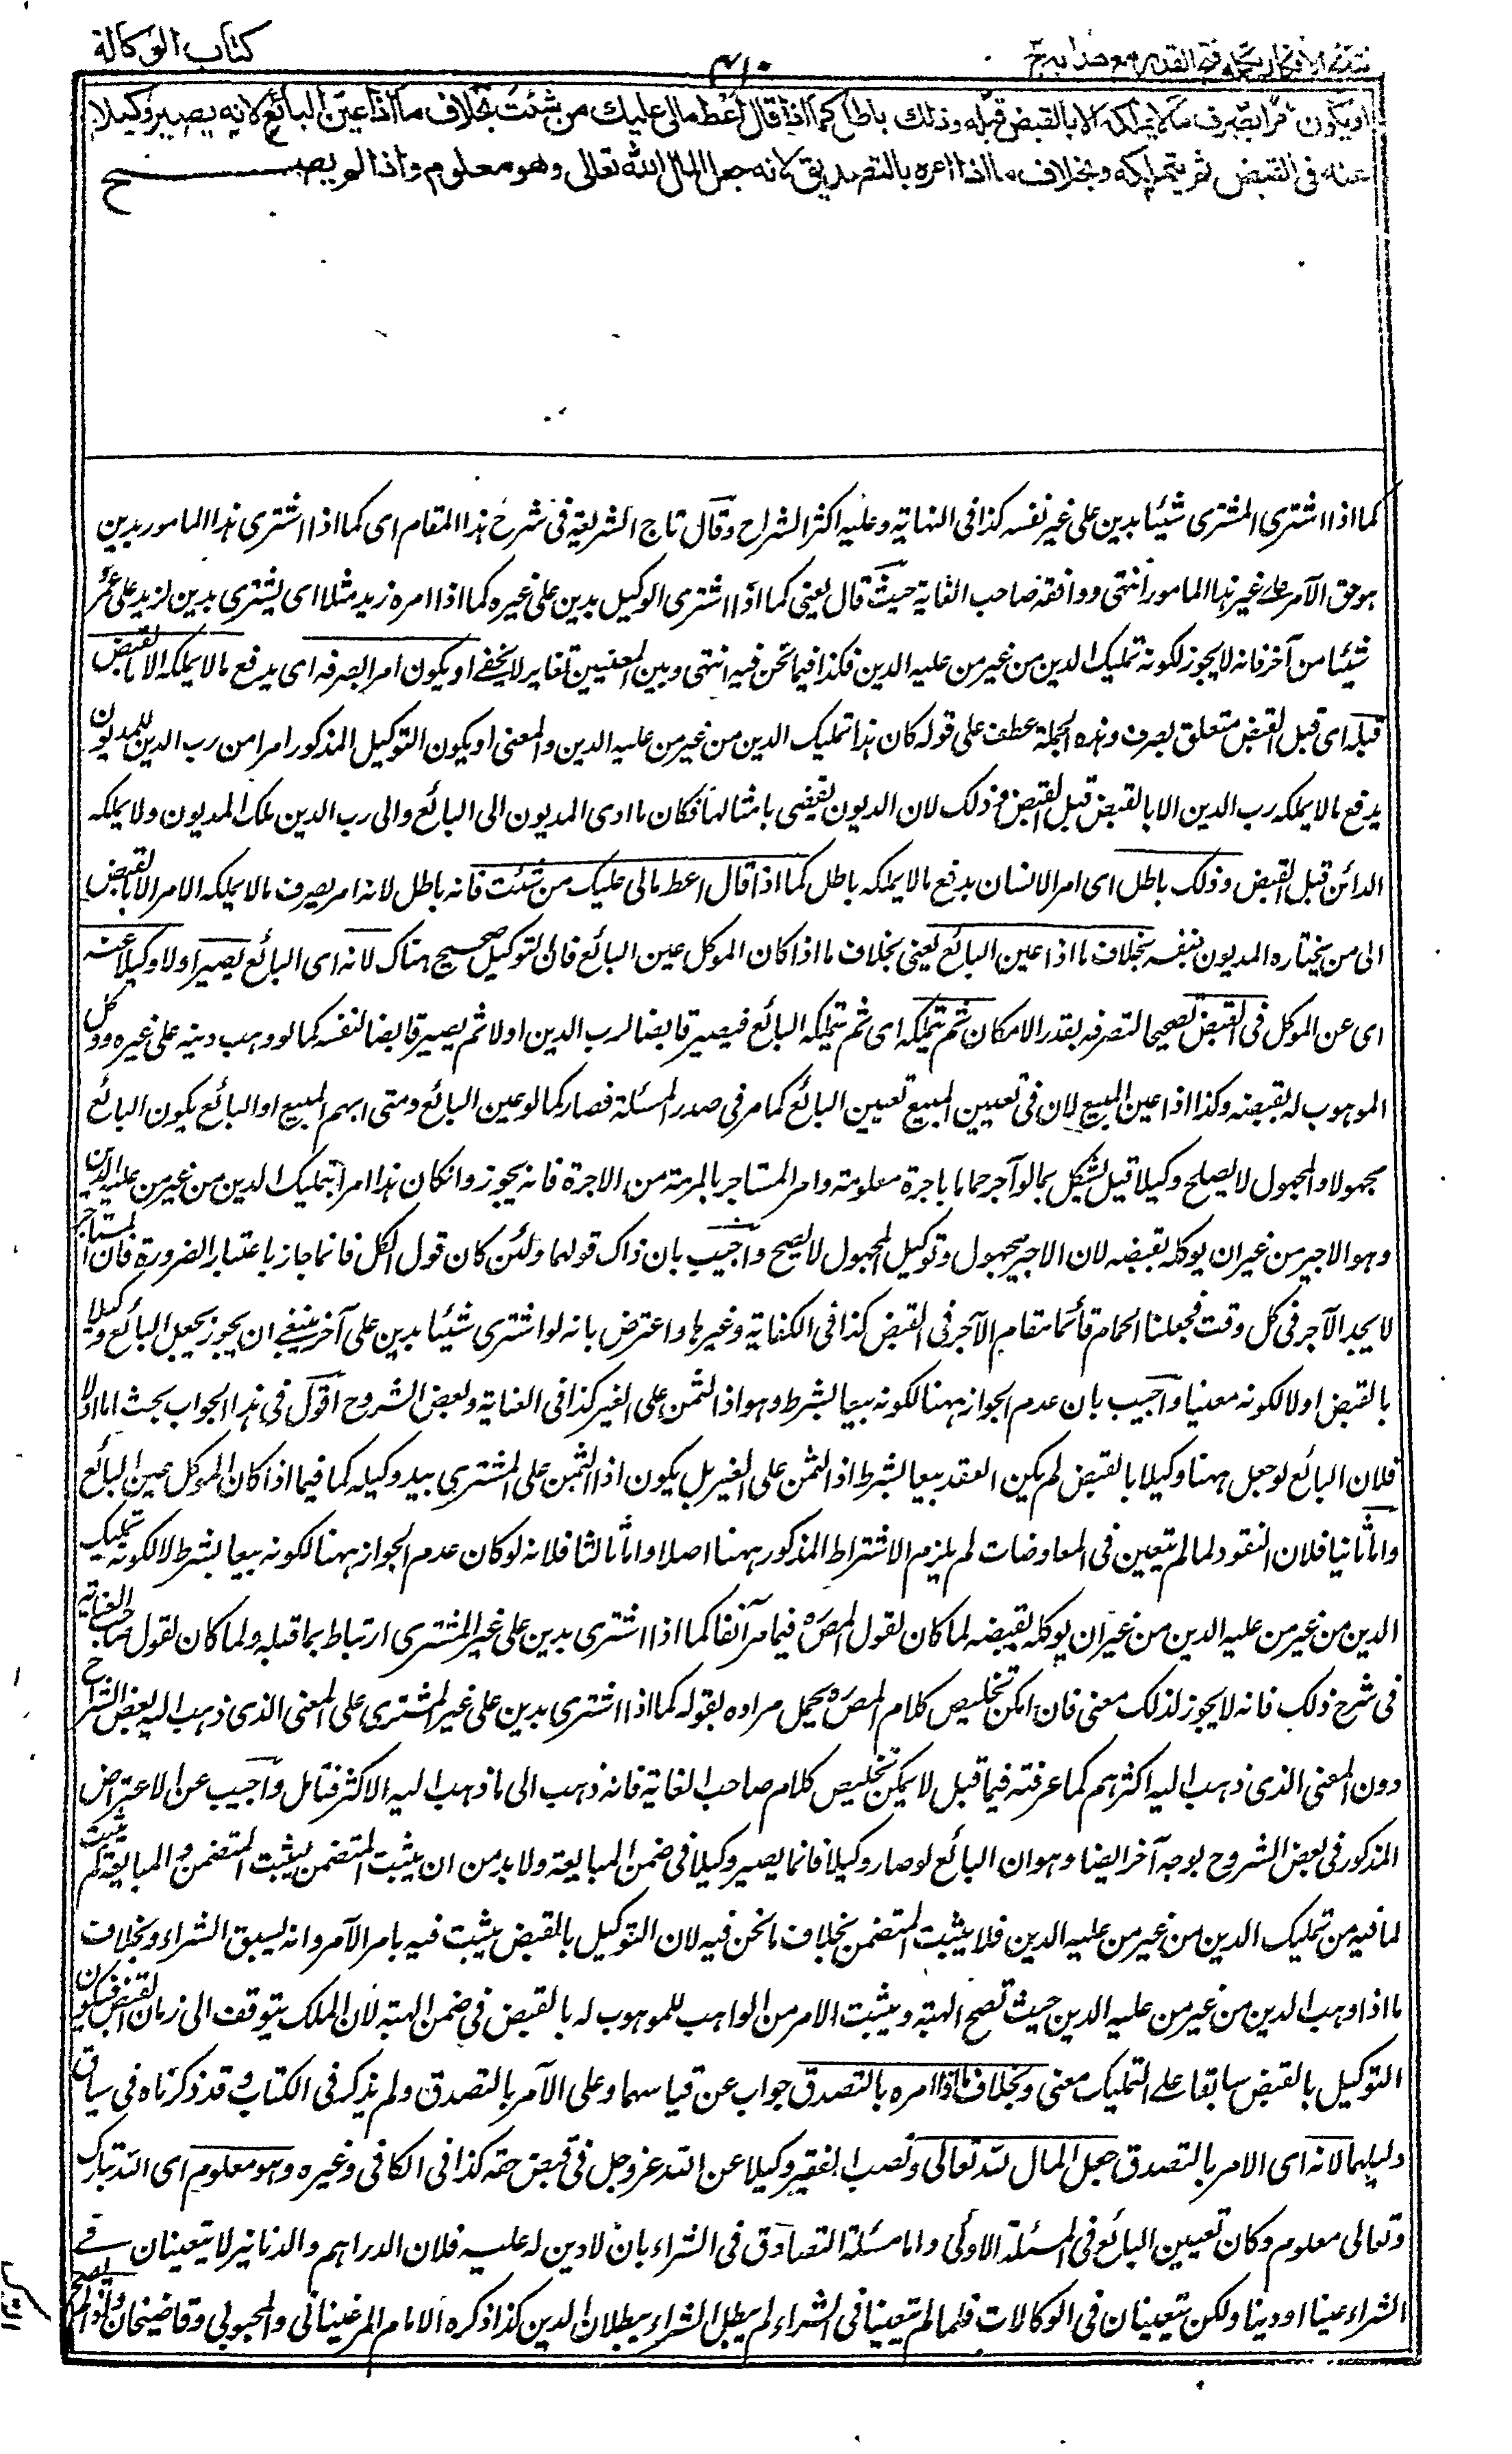 نتائج الافكار تكملة فتح القدير مع هداية ج ٣
٤١٠
كتاب الوكالة
او يكون امرا بصرف ما لا يملكه الا بالقبض قبله وذلك باطل كما اذا قال اعط مالي عليك من شئت بخلاف ما اذا عين البائع لانه يصير وكيلا
عنه في القبض ثم يتملكه وبخلاف ما اذا امره بالتصدق لانه جعل المال لله تعالى وهو معلوم واذا لم يصح
كما اذا اشترى المشترى شيئا بدين على غير نفسه كذا في النهاية وعليه اكثر الشراح وقال تاج الشريعة في شرح هذا المقام اى كما اذا اشترى هذا المامور بدين
هو حق الآمر على غير هذا المامور انتهى ووافقه صاحب الغاية حيث قال يعنى كما اذا اشترى الوكيل بدين على غيره كما اذا امره زيد مثلا اى يشترى بدين لزيد على عمرو
شيئا من آخر فانه لا يجوز لكونه تمليك الدين من غير من عليه الدين فكذا فيما نحن فيه انتهى وبين المعنيين تغاير لا يخفى او يكون امرا بصرفه اى يدفع ما لا يملكه الا بالقبض
قبله اى قبل القبض متعلق بصرف وهذه الجملة عطف على قوله كان هذا تمليك الدين من غير من عليه الدين والمعنى او يكون التوكيل المذكور امرا من رب الدين للمديون
يدفع ما لا يملكه رب الدين الا بالقبض قبل القبض وذلك لان الديون تقضى بامثالها فكان ما ادى المديون الى البائع والى رب الدين ملك المديون ولا يملكه
الدائن قبل القبض وذلك باطل اى امر الانسان بدفع ما لا يملكه باطل كما اذا قال اعط مالي عليك من شئت فانه باطل لانه امر بصرف ما لا يملكه الامر الا بالقبض
الى من يختاره المديون بنفسه بخلاف ما اذا عين البائع يعنى بخلاف ما اذا كان الموكل عين البائع فان التوكيل صحيح هناك لانه اى البائع يصير اولا وكيلا عنه
اى عن الموكل في القبض تصحيحا لتصرفه بقدر الامكان ثم يتملكه اى ثم يتملكه البائع فيصير قابضا لرب الدين اولا ثم يصير قابضا لنفسه كما لو وهب دينه على غيره ووكل
الموهوب له بقبضه وكذا اذا عين المبيع لان في تعيين المبيع تعيين البائع كما مر في صدر المسئلة فصار كما لو عين البائع ومتى ابهم المبيع او البائع يكون البائع
مجهولا والمجهول لا يصلح وكيلا قيل يشكل بما لو آجر حماما باجرة معلومة وامر المستاجر بالمرمة من الاجرة فانه يجوز وان كان هذا امرا بتمليك الدين من غير من عليه الدين
وهو الاجير من غير ان يوكله بقبضه لان الاجير مجهول وتوكيل المجهول لا يصح واجيب بان ذاك قولهما ولئن كان قول الكل فانما جاز باعتبار الضرورة فان المستاجر
لا يجد الآجر في كل وقت فجعلنا الحمام قائما مقام الآجر في القبض كذا في الكفاية وغيرها واعترض بانه لو اشترى شيئا بدين على آخر ينبغي ان يجوز بجعل البائع وكيلا
بالقبض اولا لكونه معينا واجيب بان عدم الجواز ههنا لكونه بيعا بشرط وهو اداء الثمن على الغير كذا في العناية وبعض الشروح اقول في هذا الجواب بحث اما اولا
فلان البائع لو جعل ههنا وكيلا بالقبض لم يكن العقد بيعا بشرط اداء الثمن على الغير بل يكون اداء الثمن على المشترى بيد وكيله كما فيما اذا كان الموكل عين البائع
واما ثانيا فلان النقود لما لم تتعين في المعاوضات لم يلزم الاشتراط المذكور ههنا اصلا واما ثالثا فلانه لو كان عدم الجواز ههنا لكونه بيعا بشرط لا لكونه تمليك
الدين من غير من عليه الدين من غير ان يوكله بقبضه لما كان لقول المصره فيما مر آنفا كما اذا اشترى بدين على غير المشترى ارتباط بما قبله ولما كان لقول صاحب الغاية
في شرح ذلك فانه لا يجوز لذلك معنى فان امكن تخليص كلام المصره بحمل مراده بقوله كما اذا اشترى بدين على غير المشترى على المعنى الذى ذهب اليه بعض الشراح
دون المعنى الذى ذهب اليه اكثرهم كما عرفته فيما قبل لا يمكن تخليص كلام صاحب الغاية فانه ذهب الى ما ذهب اليه الاكثر فتامل واجيب عن الاعتراض
المذكور في بعض الشروح بوجه آخر ايضا وهو ان البائع لو صار وكيلا فانما يصير وكيلا في ضمن المبايعة ولا بد من ان يثبت المتضمن ليثبت المتضمن والمبايعة لم تثبت
لما فيه من تمليك الدين من غير من عليه الدين فلا يثبت المتضمن بخلاف ما نحن فيه لان التوكيل بالقبض يثبت فيه بامر الآمر وانه يسبق الشراء وبخلاف
ما اذا وهب الدين من غير من عليه الدين حيث تصح الهبة ويثبت الامر من الواهب للموهوب له بالقبض في ضمن الهبة لان الملك يتوقف الى زمان القبض فيكون
التوكيل بالقبض سابقا على التمليك معنى وبخلاف ما اذا امره بالتصدق جواب عن قياسهما وعلى الآمر بالتصدق ولم يذكر في الكتاب وقد ذكرناه في سياق
دليلهما لانه اى الامر بالتصدق جعل المال لله تعالى ونصب الفقير وكيلا عن الله عز وجل في قبض حقه كذا في الكافي وغيره وهو معلوم اى الله تبارك
وتعالى معلوم وكان تعيين البائع في المسئلة الاولى واما مسئلة التصادق في الشراء بان لا دين له عليه فلان الدراهم والدنانير لا يتعينان في
الشراء عينا او دينا ولكن يتعينان في الوكالات فلما لم يتعينا في الشراء لم يبطل الشراء ببطلان الدين كذا ذكره الامام المرغيناني والمحبوبي وقاضيخان واذا لم يصح